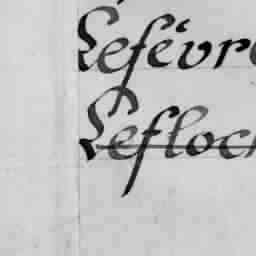 Lefèvre
Lefloch